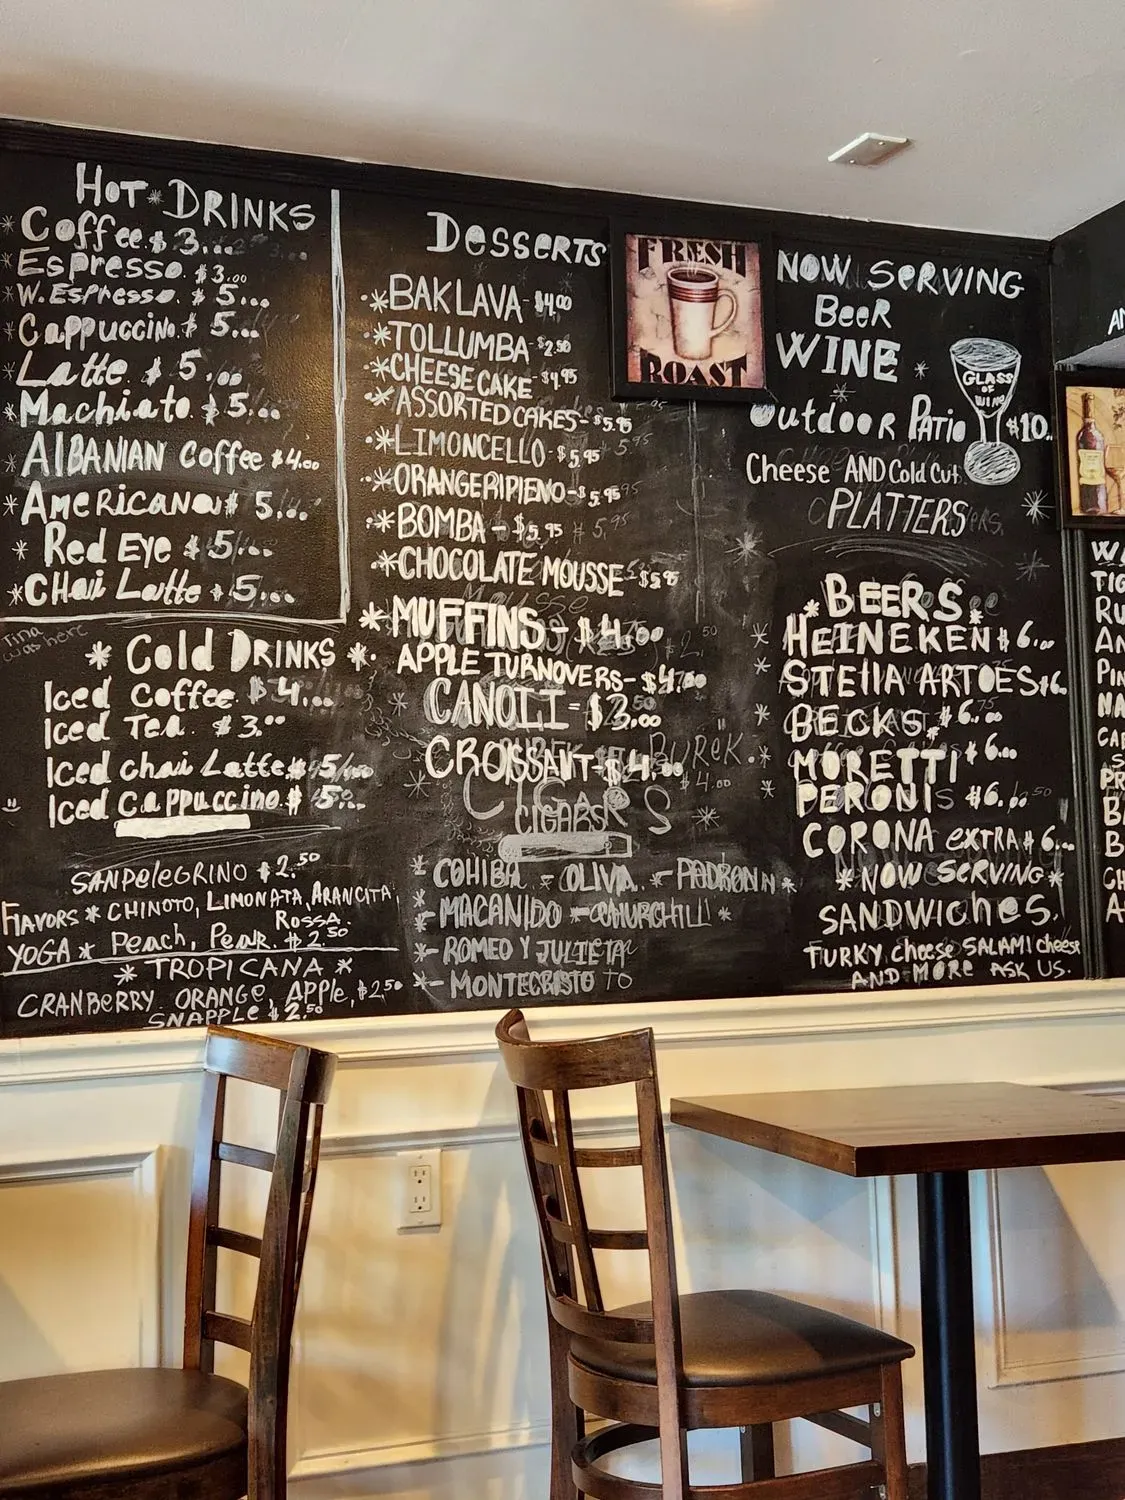 HOT * DRINKS
* Coffee. $ 3...
* Espresso. $3.00
* W. Espresso. $ 5...
* Cappuccino. $ 5...
* Latte. $ 5.00
* Machiato. $ 5...
* AlBANIAN Coffee $4.00
* Americano $ 5...
* Red Eye $ 5...
* CHai Latte $ 5...
Tina
was here
* Cold DRINKS *
Iced Coffee. $ 4...
Iced Tea. $ 3.00
Iced chai Latte $ 5.00
Iced cappuccino. $ 5...
SANPELEGRINO $2.50
FLAVORS * CHINOTO, LIMONATA, ARANCITA,
ROSSA.
YOGA * Peach, Pear. $2.50
* TROPICANA *
CRANBERRY ORANGE, APPle, $2.50
SNAPPLE $ 2.50
Desserts
* BAKLAVA - $4.00
* TOLLUMBA $2.50
* CHEESE CAKE $4.95
* ASSORTED CAKES - $5.95
* LIMONCELLO - $5.95
* ORANGE RIPIENO - $5.95
* BOMBA - $5.95
* CHOCOLATE MOUSSE $5.95
* MUFFINS - $4.00
* APPLE TURNOVERS - $4.00
CANOLI - $3.00
CROSSANT - $4.00
BUREK.
CIGARS
CIGARS
* COHIBA - OLIVA. * PADRON *
* MACANIDO * CHURCHILL *
* ROMEO Y JULIETA
* MONTECRISTO
FRESH
ROAST
NOW SeRVING
BeeR
WINE
GLASS
OF
WINE
Outdoor Patio $10..
Cheese AND Cold Cut
PLATTERS
* BEERS *
HEINEKEN $ 6...
STEllA ARTOES $6.
BECKS. $6.00
MORETTI $6...
PERONI $6...
CORONA extra $ 6...
* NOW SeRVING *
SANDWICHES!
TURKY cheese SALAMI cheese
AND MORE ASK US.